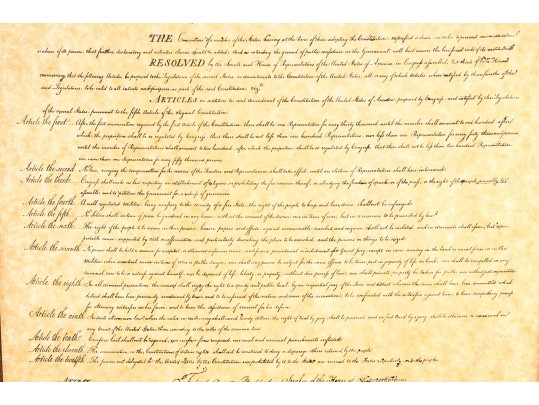 THE Conventions of a number of the States having at the time of their adopting the Constitution, expressed a desire, in order to prevent misconstruction
or abuse of its powers, that further declaratory and restrictive clauses should be added: And as extending the ground of public confidence in the Government, will best insure the beneficent ends of its institution
RESOLVED by the Senate and House of Representatives of the United States of America, in Congress assembled, two thirds of both Houses
concurring, that the following Articles be proposed to the Legislatures of the several States, as amendments to the Constitution of the United States, all or any of which Articles, when ratified by three fourths of the said
Legislatures, to be valid to all intents and purposes, as part of the said Constitution, viz.
ARTICLES in addition to, and Amendment of the Constitution of the United States of America, proposed by Congress, and ratified by the Legislatures
of the several States, pursuant to the fifth Article of the original Constitution.
Article the first. After the first enumeration required by the first Article of the Constitution, there shall be one Representative for every thirty thousand, until the number shall amount to one hundred, after
which, the proportion shall be so regulated by Congress, that there shall be not less than one hundred Representatives, nor less than one Representative for every forty thousand persons,
until the number of Representatives shall amount to two hundred, after which, the proportion shall be so regulated by Congress, that there shall not be less than two hundred Representatives,
nor more than one Representative for every fifty thousand persons.
Article the second. No law, varying the compensation for the services of the Senators and Representatives, shall take effect, until an election of Representatives shall have intervened.
Article the third. Congress shall make no law respecting an establishment of religion, or prohibiting the free exercise thereof; or abridging the freedom of speech, or of the press; or the right of the people peaceably to
assemble, and to petition the Government for a redress of grievances.
Article the fourth. A well regulated militia, being necessary to the security of a free State, the right of the people to keep and bear arms, shall not be infringed.
Article the fifth. No Soldier shall, in time of peace be quartered in any house, without the consent of the owner, nor in time of war, but in a manner to be prescribed by law.
Article the sixth. The right of the people to be secure in their persons, houses, papers, and effects, against unreasonable searches and seizures, shall not be violated, and no warrants shall issue, but upon
probable cause, supported by oath or affirmation, and particularly describing the place to be searched, and the persons or things to be seized.
Article the seventh. No person shall be held to answer for a capital, or otherwise infamous crime, unless on a presentment or indictment of a Grand Jury, except in cases arising in the land or naval forces, or in the
militia, when in actual service in time of war or public danger; nor shall any person be subject for the same offence to be twice put in jeopardy of life or limb; nor shall be compelled in any
criminal case to be a witness against himself, nor be deprived of life, liberty, or property, without due process of law; nor shall private property be taken for public use without just compensation.
Article the eighth. In all criminal prosecutions, the accused shall enjoy the right to a speedy and public trial, by an impartial jury of the State and district wherein the crime shall have been committed, which
district shall have been previously ascertained by law, and to be informed of the nature and cause of the accusation; to be confronted with the witnesses against him; to have compulsory process
for obtaining witnesses in his favor, and to have the assistance of counsel for his defence.
Article the ninth. In suits at common law, where the value in controversy shall exceed twenty dollars, the right of trial by jury shall be preserved, and no fact tried by a jury, shall be otherwise re-examined in
any Court of the United States, than according to the rules of the common law.
Article the tenth. Excessive bail shall not be required, nor excessive fines imposed, nor cruel and unusual punishments inflicted.
Article the eleventh. The enumeration in the Constitution, of certain rights, shall not be construed to deny or disparage others retained by the people.
Article the twelfth. The powers not delegated to the United States by the Constitution, nor prohibited by it to the States, are reserved to the States respectively, or to the people.
ATTEST
Speaker of the House of Representatives